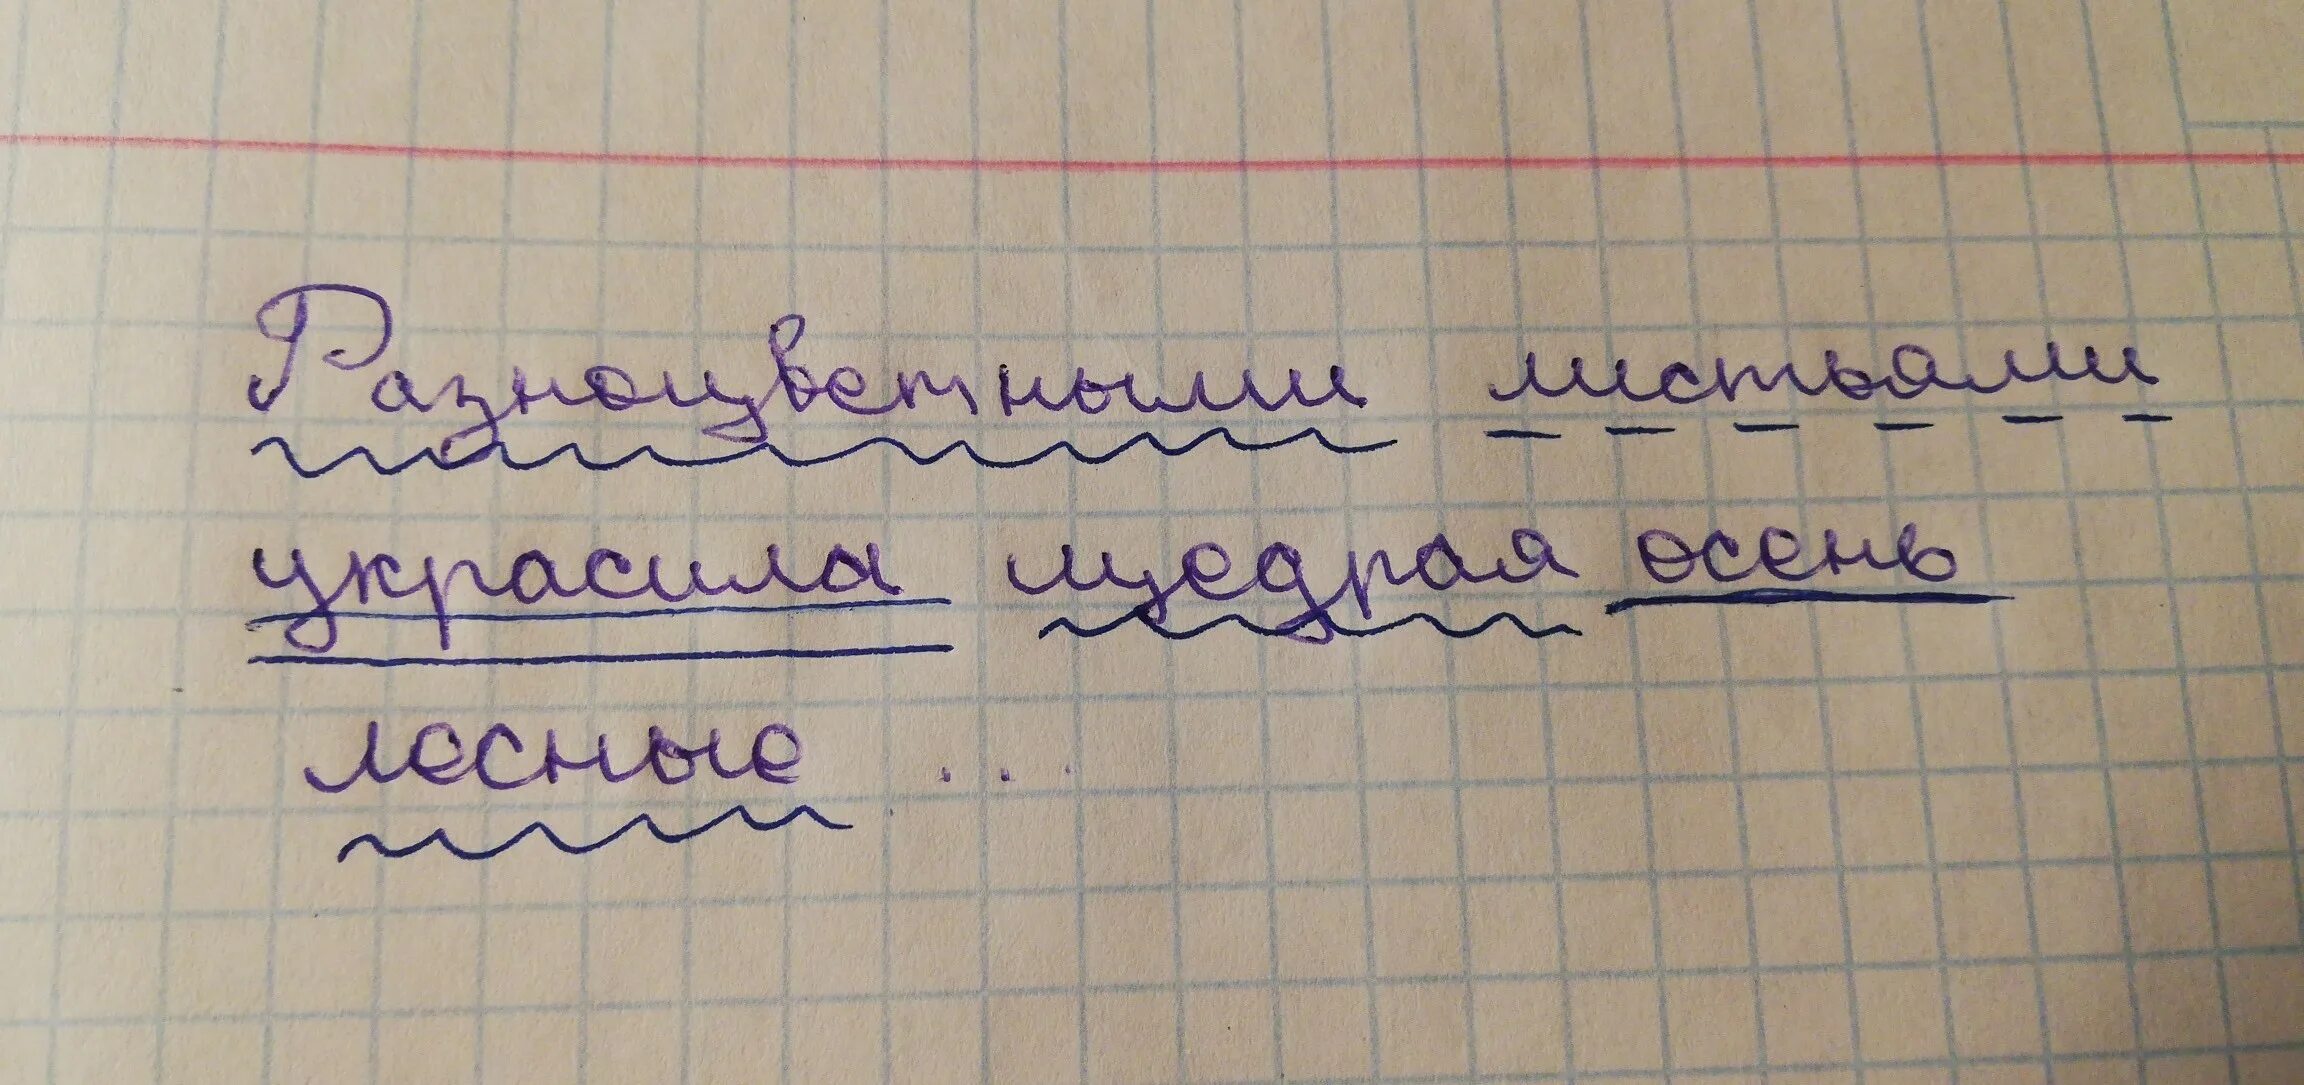 Разноцветными листьями
украсила щедрая осень
лесные ...